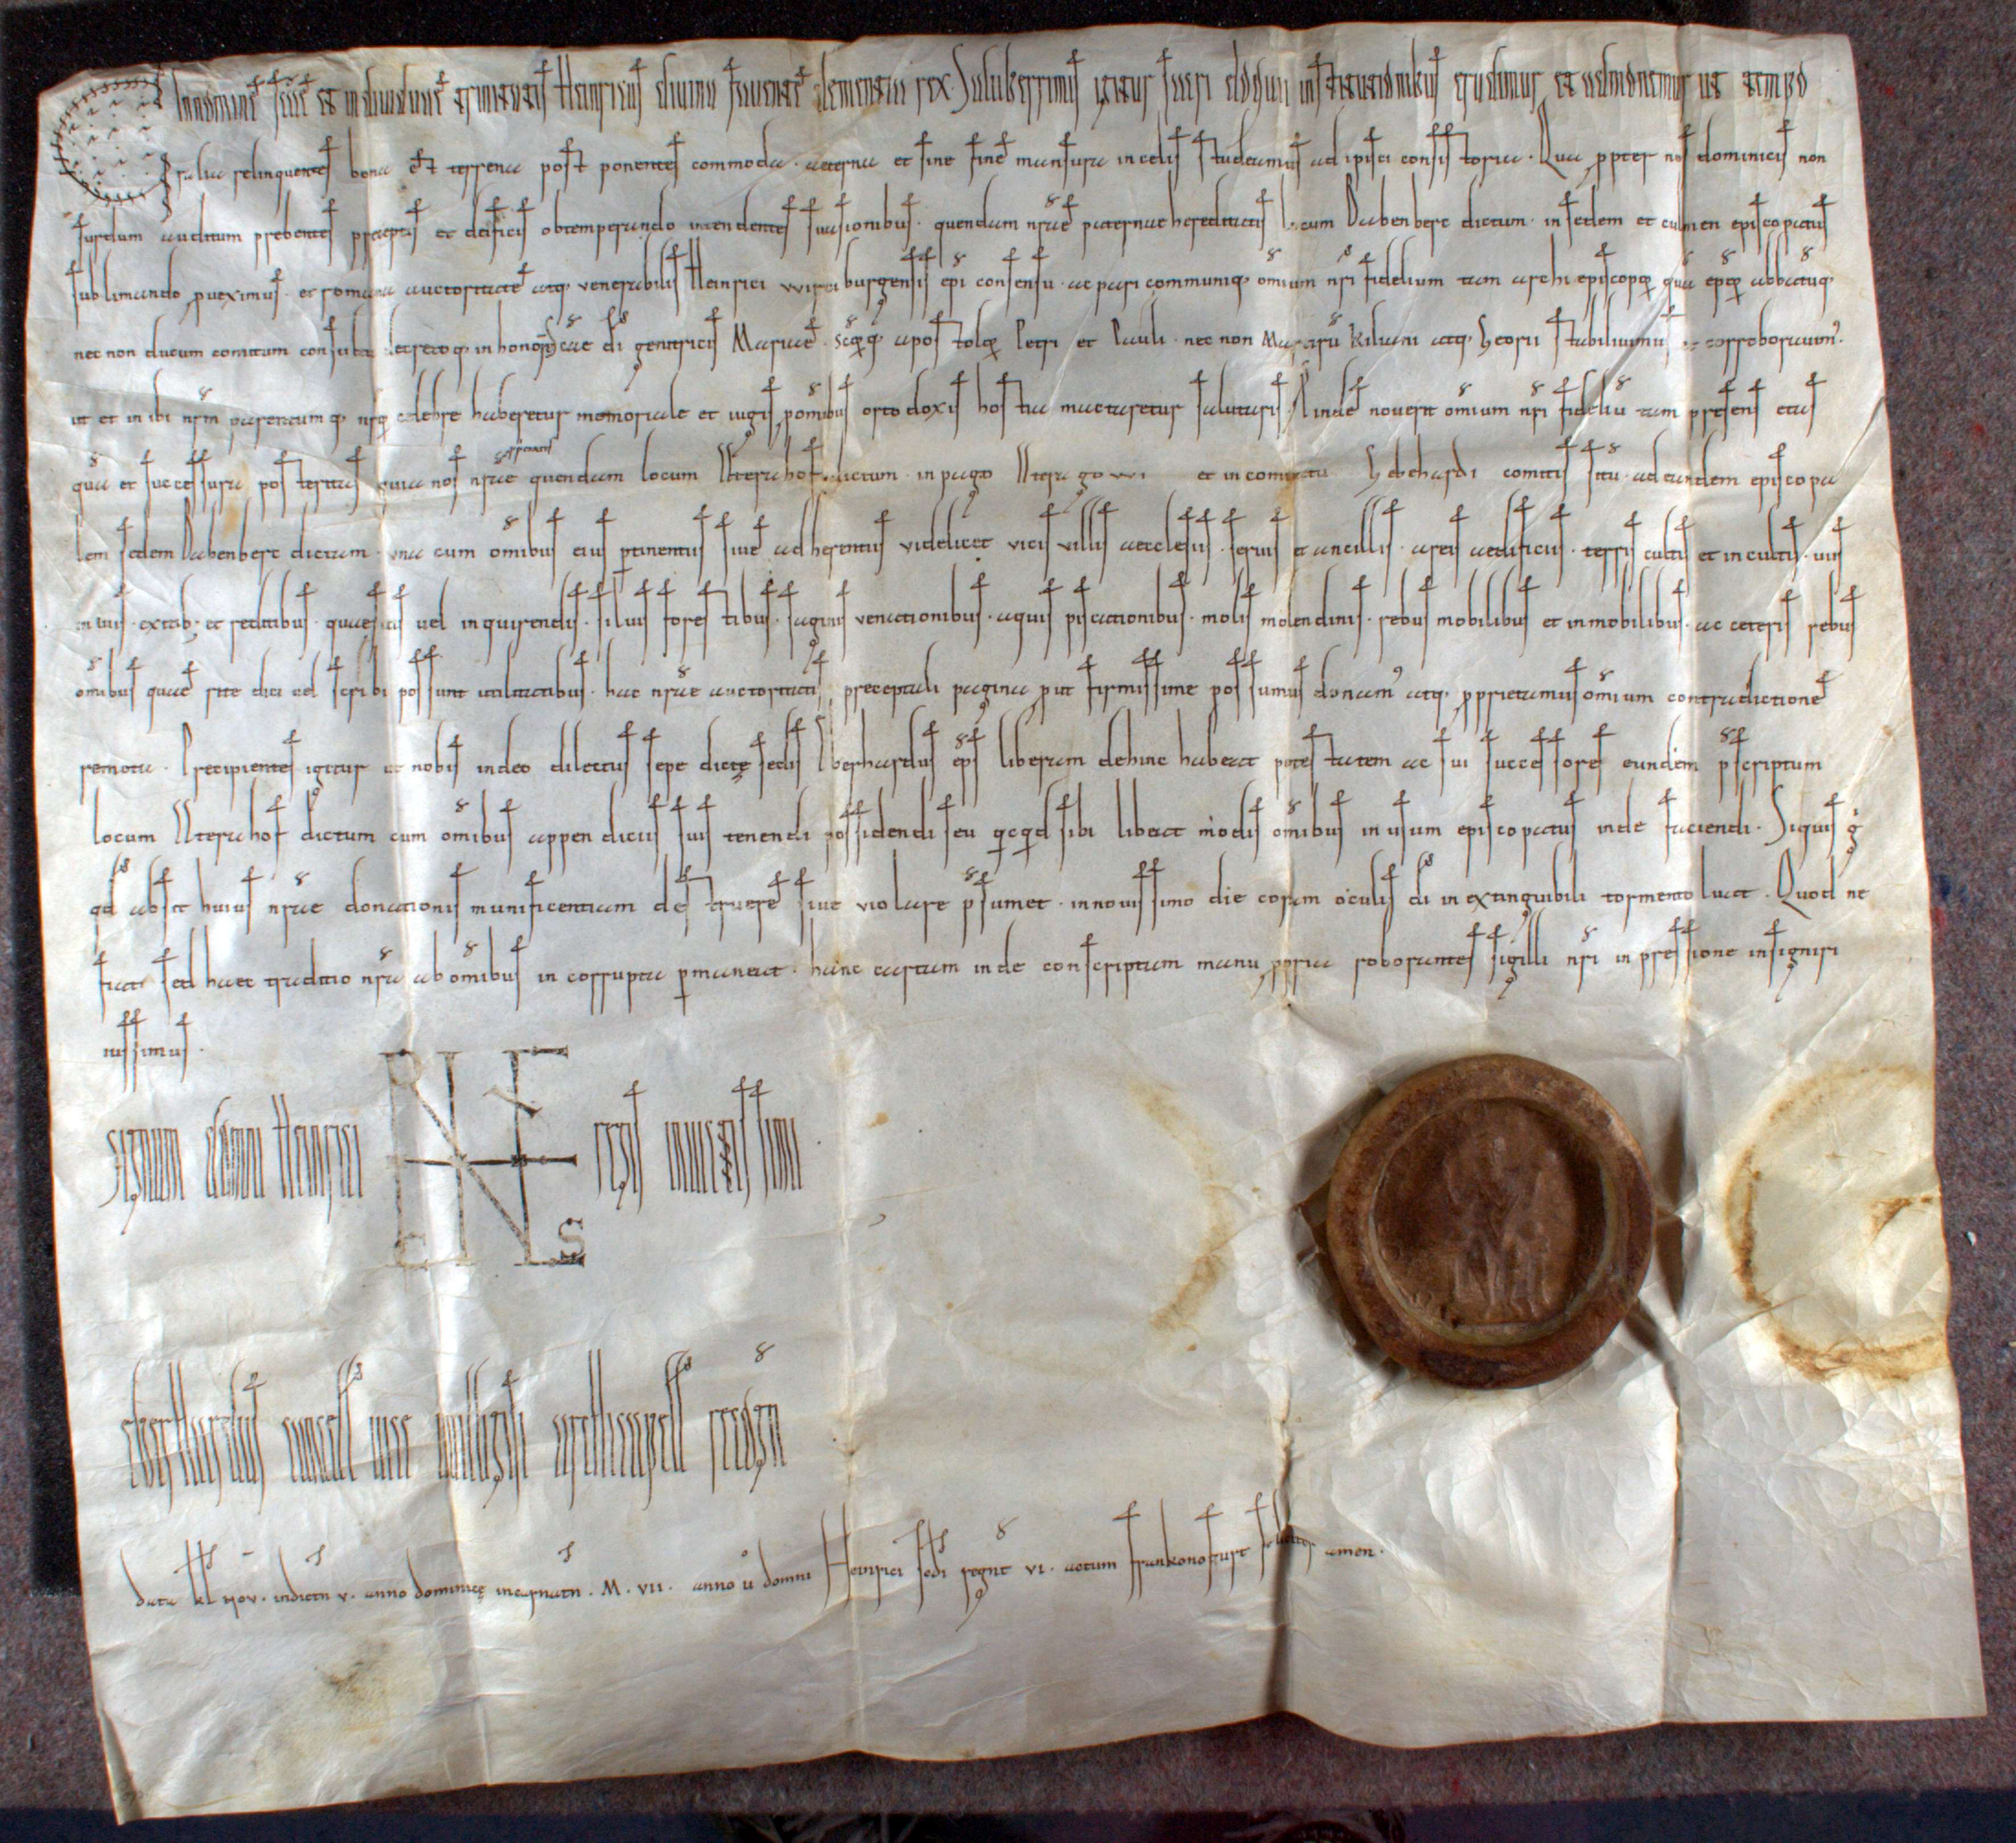 In nomine sce et individue trinitatis Heinricus divina favente clementia rex. Saluberrimis igitur sacri eloquii institutionibus erudimur et admonemur ut tempo
ralia relinquentes bona et terrena postponentes commoda. aeterna et sine fine mansura in celis studeamus adipisci consistoria. Qua ppter nos dominicis non
surdum auditum prebentes preceptis et deificis obtemperando intendentes suasionibus. quendam nrae paternae hereditatis locum Babenberc dictum. in sedem et culmen episcopatus
sublimando proveximus. et romana auctoritate atq. venerabilis Heinrici wirciburgensis epi consensu. ac pari communiq. omium nri fidelium tam archiepiscoporum qua eporum abbatuq.
nec non ducum comitum consultu decretoq. in honore scae di genitricis Mariae. scorumq. apostolorum Petri et Pauli. nec non Martiru Kiliani atq. Georii stabilivimus et corroboravim'.
ut et inibi nrm parentumq. nrorum celebre haberetur memoriale et iugis p omibus ortodoxis hostia mactaretur salutaris. Proinde noverit omium nri fideliu tam presens etas
qua et successura posteritas quia nos nrae quendam locum Uterahof dictum. in pago Uteragowi et in comitatu Gebehardi comitis situ. ad eandem episcopa
lem sedem Babenberc dictam. una cum omibus eius ptinentiis sive adherentiis videlicet vicis villis aecclesiis. servis et ancillis. areis aedificiis. terris cultis et incultis. viis
inviis. exitib. et reditibus. quaesitis vel inquirendis. silvis forestibus. saginis venationibus. aquis piscationibus. molis molendinis. rebus mobilibus et inmobilibus. ac ceteris rebus
omibus quae rite dici vel scribi possunt utilitatibus. hac nrae auctoritatis preceptali pagina put firmissime possumus donam' atq. ppriaetamus omium contradictione
remota. Precipientes igitur ut nobis in deo dilectus sepe dicte sedis Eberhardus eps liberam dehinc habeat potestatem ac sui successores eundem pscriptum
locum Uterahof dictum cum omibus appendiciis suis tenendi possidendi seu qcqd sibi libeat modis omibus in usum episcopatus inde faciendi. Siquis g
qd absit huius nrae donationis munificentiam destruere sive violare psumet. in novissimo die coram oculis di inextinguibili tormento luat. Quod ne
fiat sed haec traditio nra ab omibus incorrupta pmaneat. hanc cartam inde conscriptam manu ppria roborantes sigilli nri inpressione insigniri
iussimus.
Signum domni Heinrici regis invictissimi.
Eberhardus cancell vice Willigisi archicapell recogn
Data kl nov. indictn v. anno dominice incarnatn. M. VII. anno u domni Heinrici scdi regnt VI. actum frankonofurt feliciter amen.